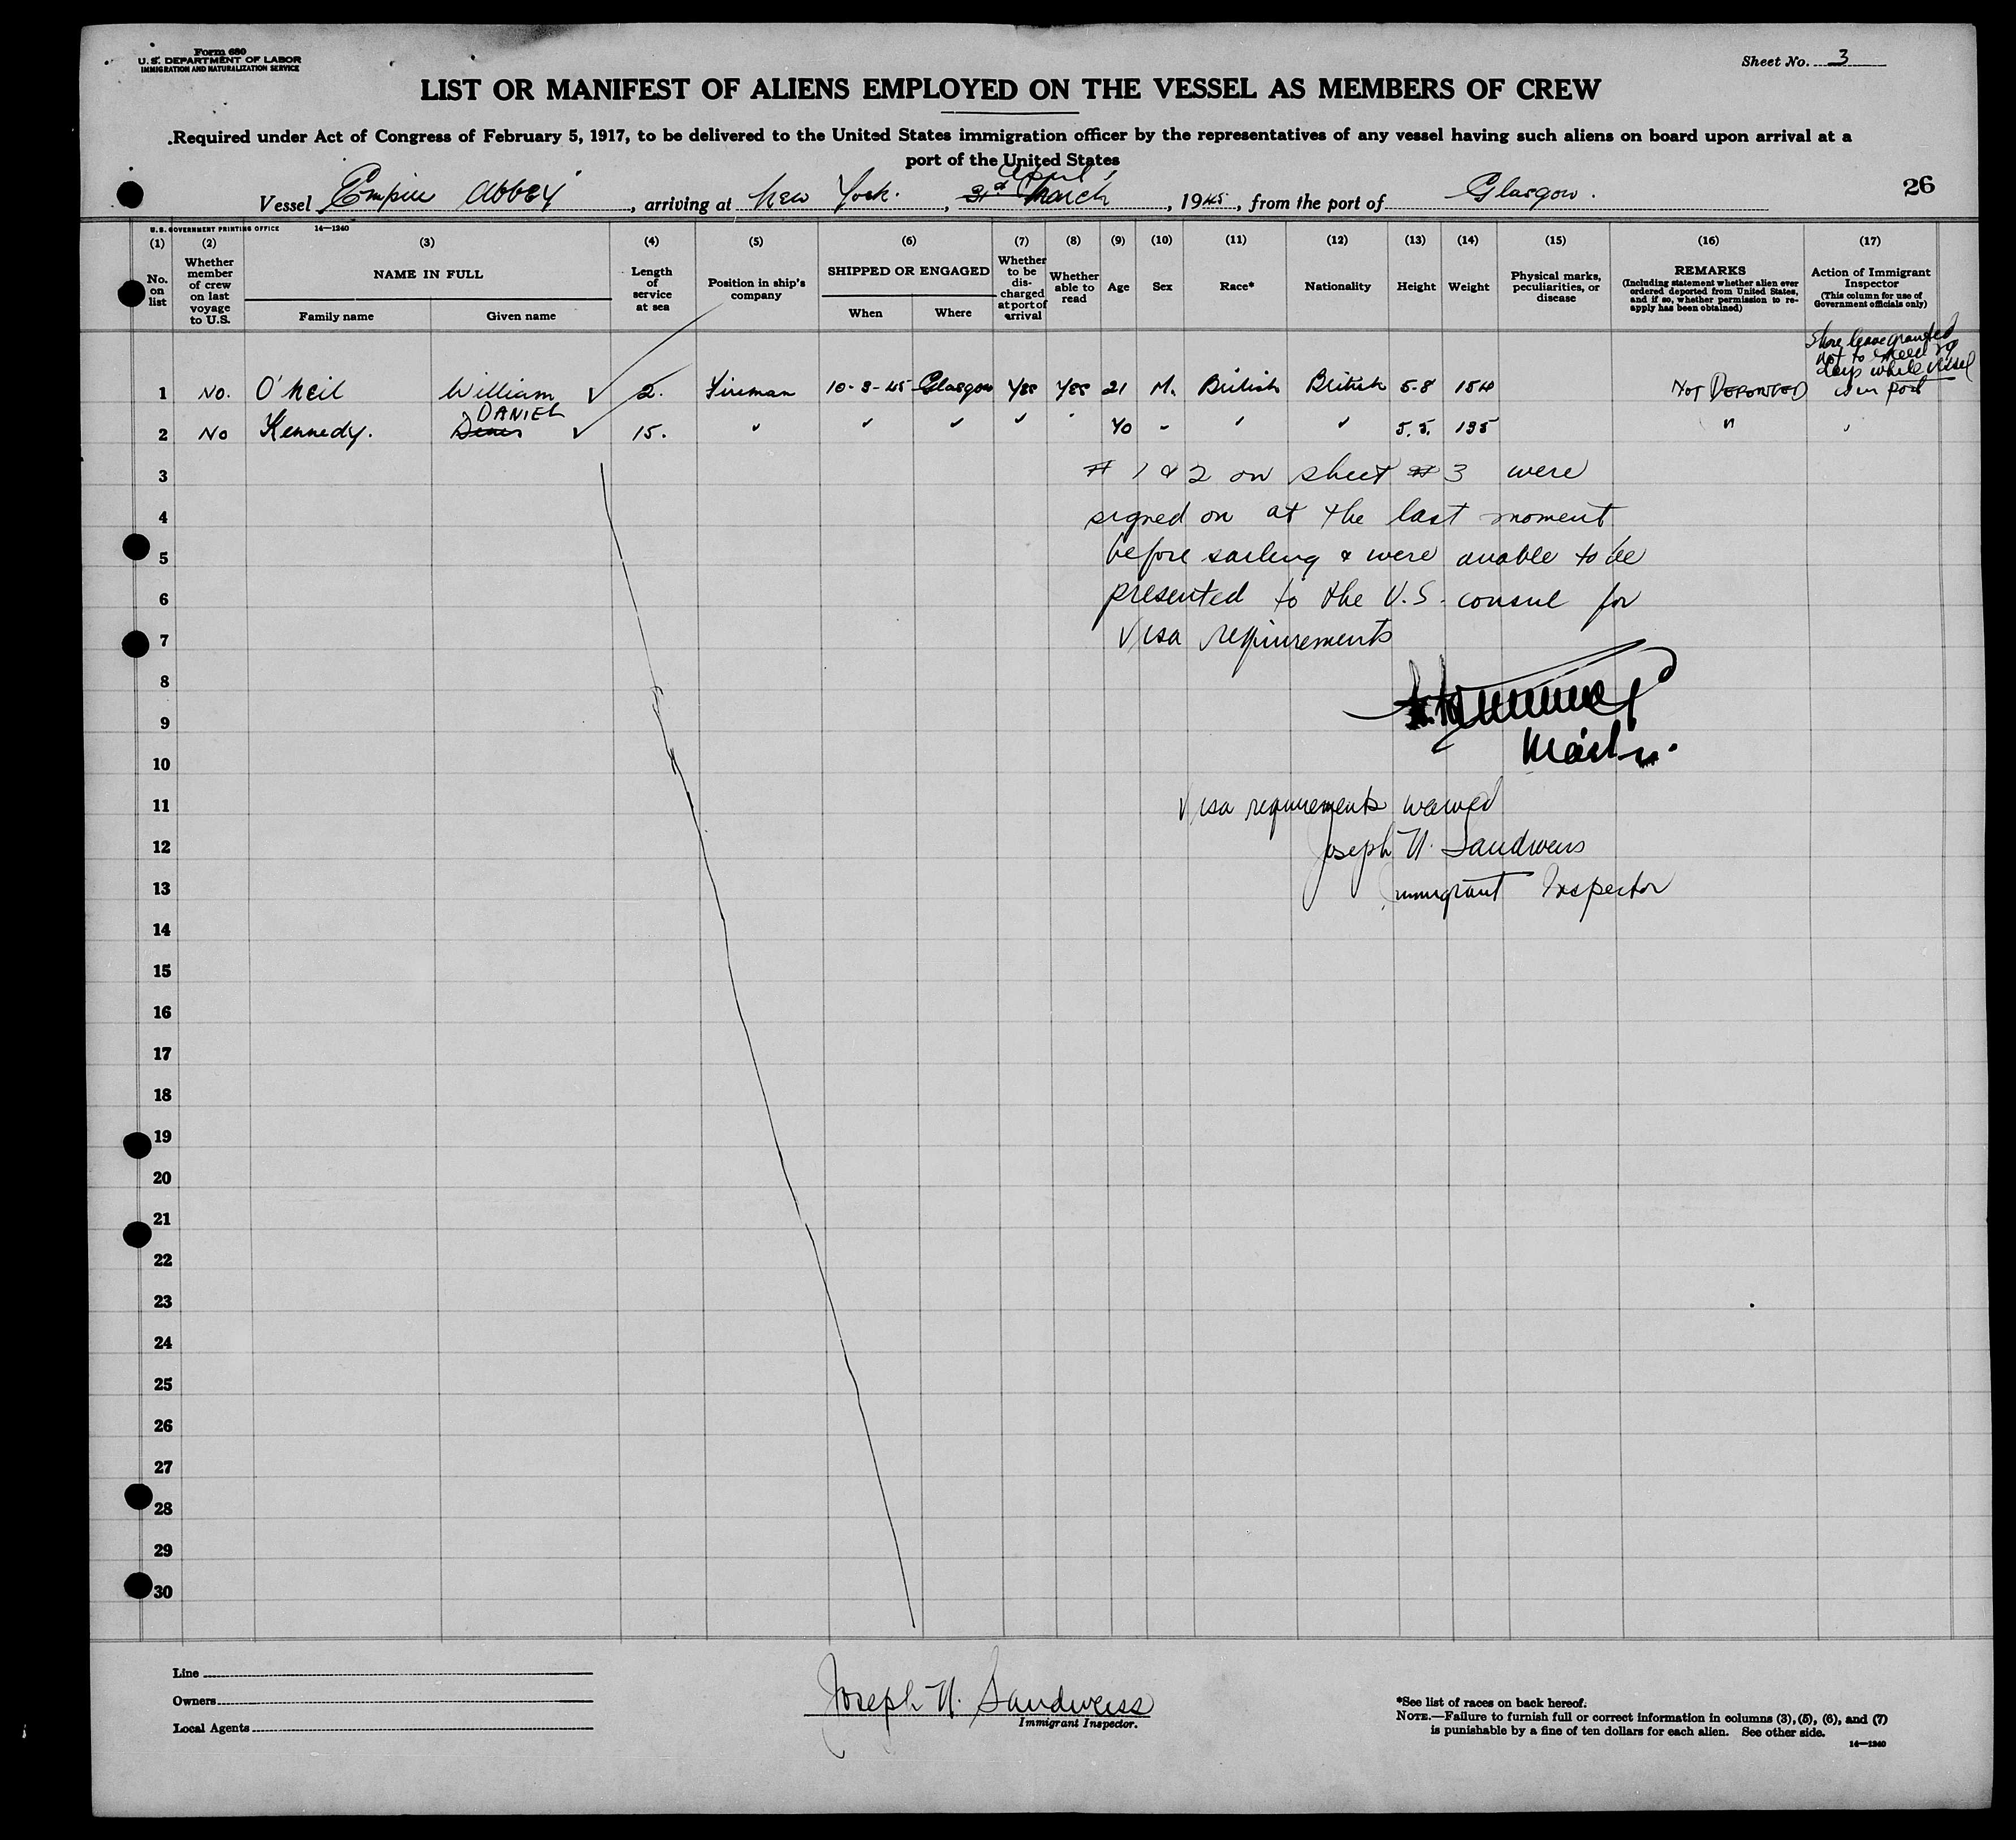 Form 680
U. S. DEPARTMENT OF LABOR
IMMIGRATION AND NATURALIZATION SERVICE
Sheet No. 3
LIST OR MANIFEST OF ALIENS EMPLOYED ON THE VESSEL AS MEMBERS OF CREW
Required under Act of Congress of February 5, 1917, to be delivered to the United States immigration officer by the representatives of any vessel having such aliens on board upon arrival at a
port of the United States
April 1
Vessel Empire Abbey, arriving at New York., 31st March, 1945, from the port of Glasgow.
26
U. S. GOVERNMENT PRINTING OFFICE 14—1240
(1) (2) (3) (4) (5) (6) (7) (8) (9) (10) (11) (12) (13) (14) (15) (16) (17)
No. on list
Whether member of crew on last voyage to U.S.
NAME IN FULL
Family name Given name
Length of service at sea
Position in ship's company
SHIPPED OR ENGAGED
When Where
Whether to be discharged at port of arrival
Whether able to read
Age
Sex
Race*
Nationality
Height
Weight
Physical marks, peculiarities, or disease
REMARKS
(Including statement whether alien ever ordered deported from United States, and if so, whether permission to reapply has been obtained)
Action of Immigrant Inspector
(This column for use of Government officials only)
Shore leave granted
not to exceed 29
days while vessel
is in port
1 No. O'Neil William √ 2. Fireman 10-3-45 Glasgow Yes Yes 21 M. British British 5-8 154 NOT DEPORTED
DANIEL
2 No Kennedy. Denis √ 15. " " " " " 40 " " " 5.5. 135 " "
3 # 1 & 2 on sheet # 3 were
4 signed on at the last moment
5 before sailing & were unable to be
6 presented to the U.S. consul for
7 Visa requirements
8
9
Master.
10
11 Visa requirements waived
12 Joseph N. Sandweiss
13 Immigrant Inspector
14
15
16
17
18
19
20
21
22
23
24
25
26
27
28
29
30
Line
Owners
Local Agents
Joseph N. Sandweiss
Immigrant Inspector.
*See list of races on back hereof.
NOTE.—Failure to furnish full or correct information in columns (3), (5), (6), and (7)
is punishable by a fine of ten dollars for each alien. See other side.
14—1240